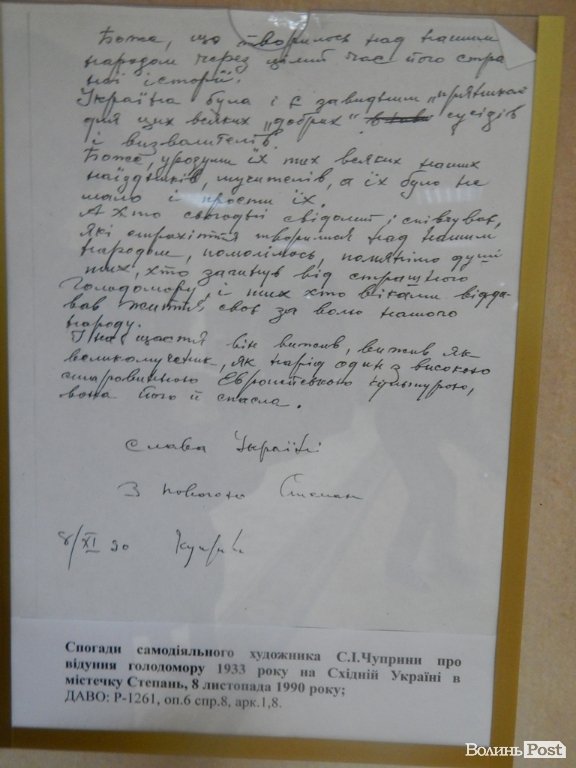 Боже, що творилось над нашим
народом через цілий час його стра
ної історії.
Україна була і є завидним
для цих всяких „добрих" сусідів
і визволителів.
Боже, їх тих всяких наших
наїздників, мучителів, а їх було не
мало і прости їх.
А хто сьогодні свідомий,
які страхіття творилися над нашим
народом, помолімось, пом'янімо душі
тих, хто загинув від страшного
Голодомору, і тих хто віками відда
вав життя своє за волю нашого
народу.
І на щастя він вижив, вижив як
великомученик, як нарід один з високою
старовинною Европейською культурою,
вона його й спасла.
Слава Україні
З повагою
8/XI 90
Спогади самодіяльного художника С.І.Чуприни про
відуння голодомору 1933 року на Східній Україні в
містечку Степань, 8 листопада 1990 року;
ДАВО: Р-1261, оп.6 спр.8, арк.1,8.
ВолиньPost